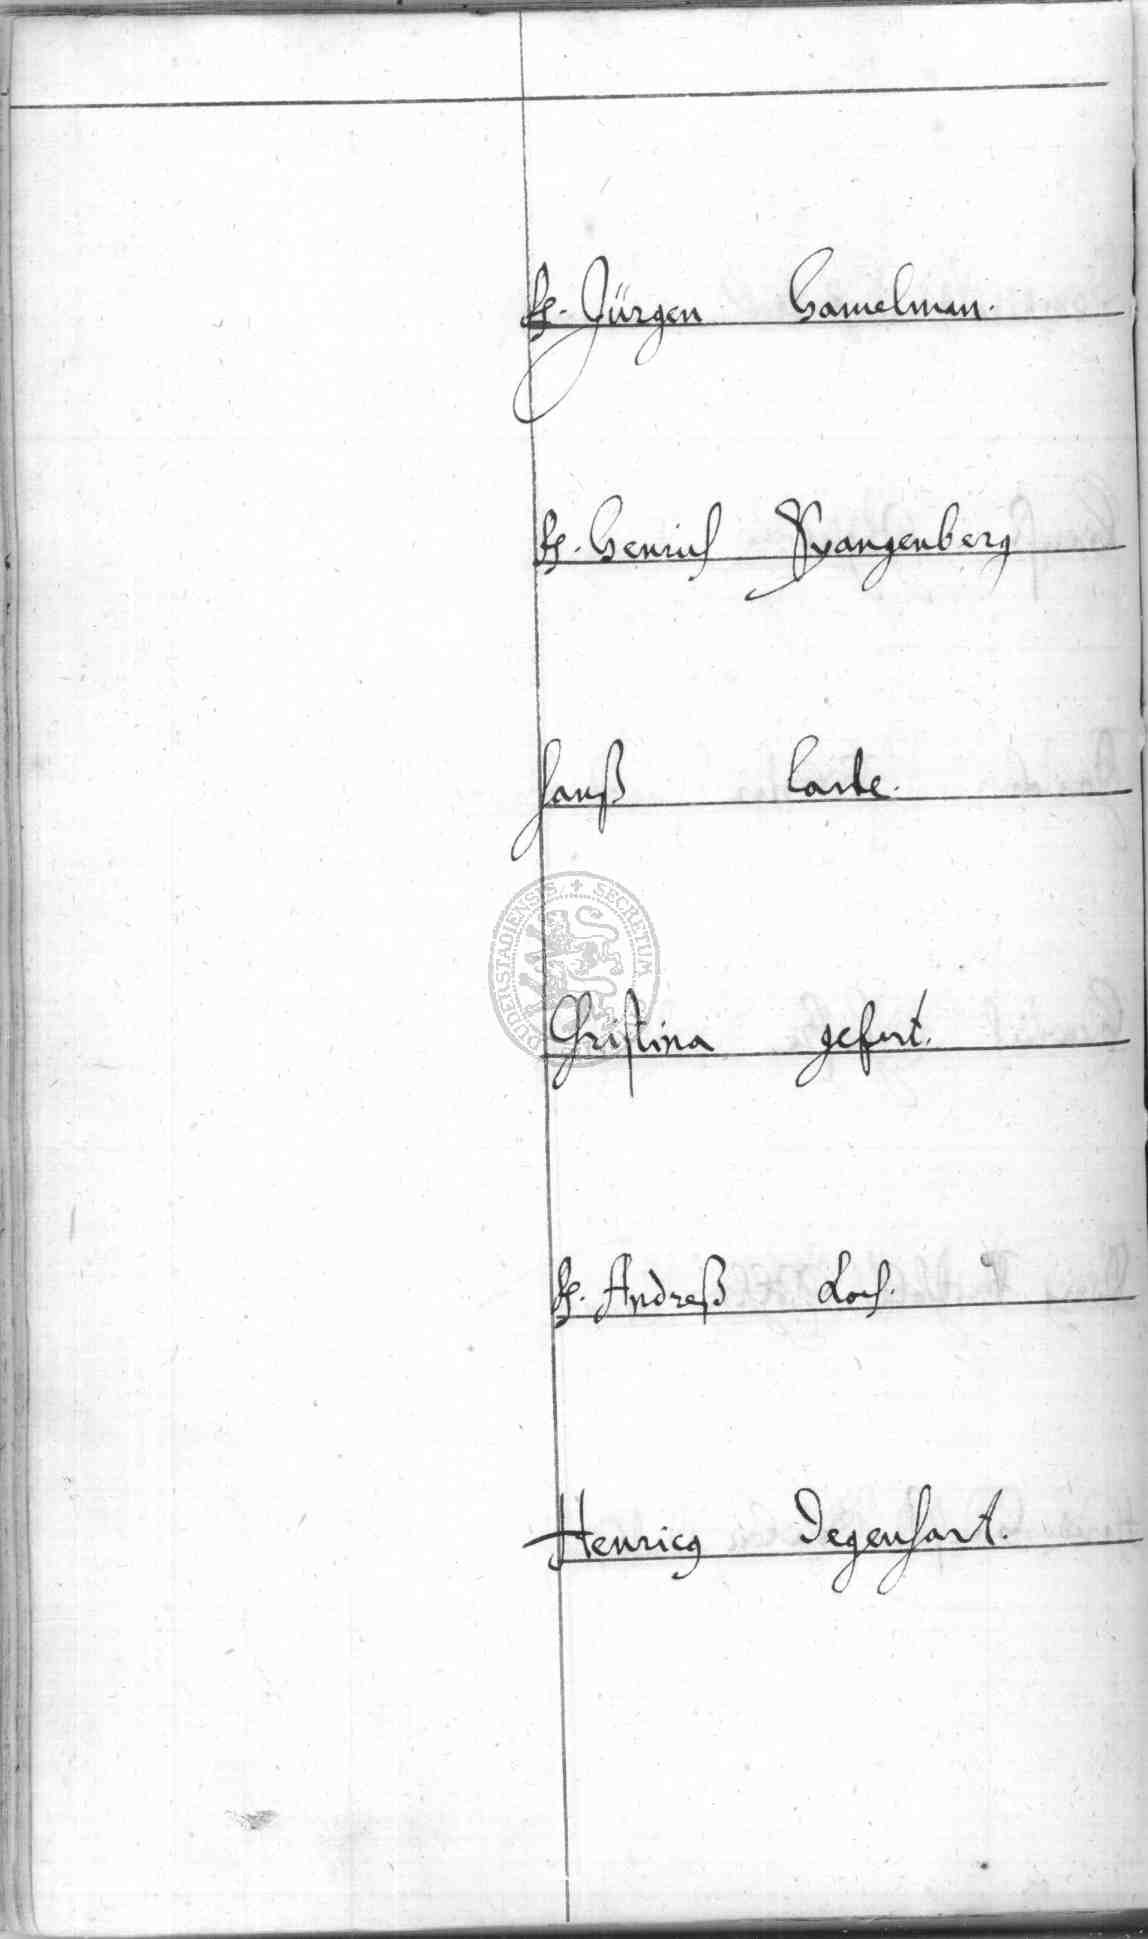 H. Jürgen Hamelman.
H. Henrich Spangenberg
Hanß
SECRETUM DUDERSTADIENSIS
Christina gefert.
H. Andreß Loch.
Henricg Degenhart.